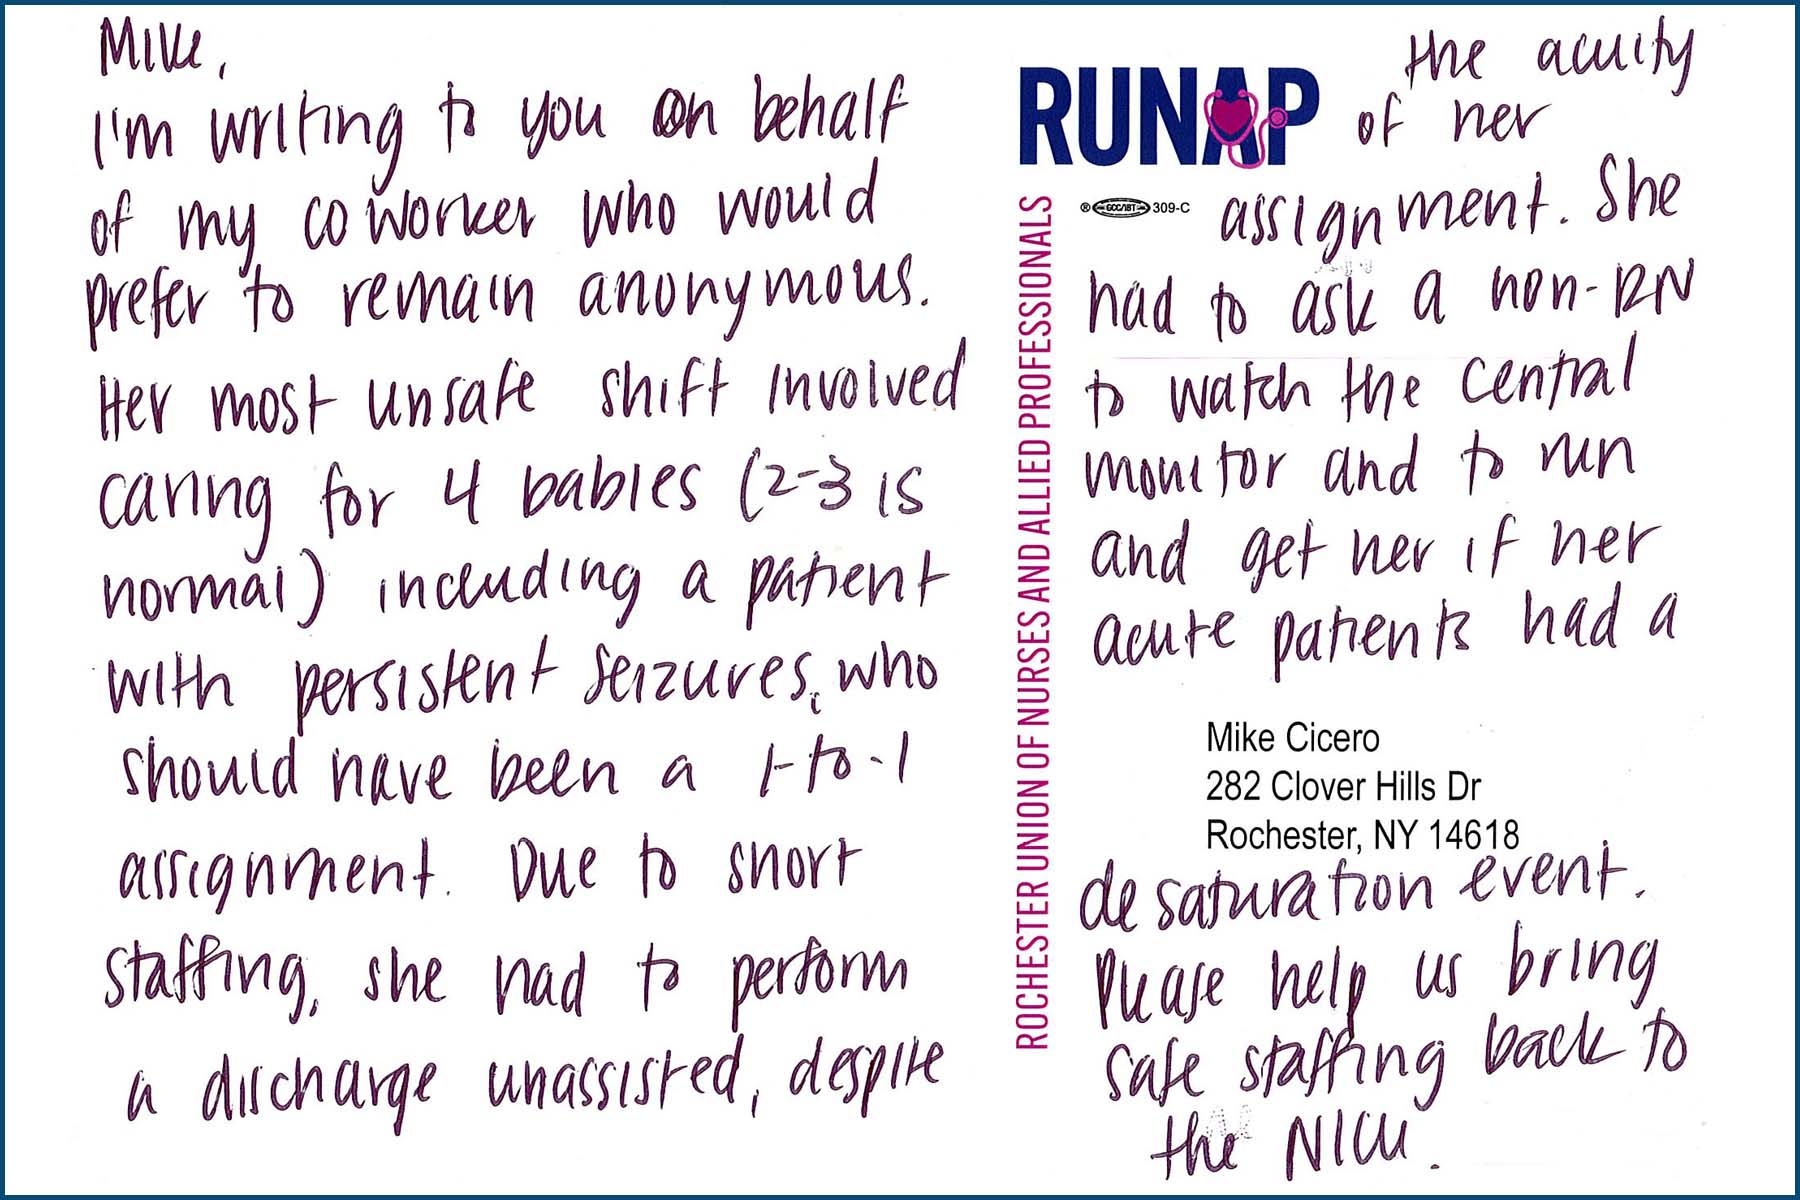 Mike,
I'm writing to you on behalf
of my coworker who would
prefer to remain anonymous.
Her most unsafe shift involved
caring for 4 babies (2-3 is
normal) including a patient
with persistent seizures, who
should have been a 1-to-1
assignment. Due to short
staffing, she had to perform
a discharge unassisted, despite
RUNAP
® GCC/IBT 309-C
ROCHESTER UNION OF NURSES AND ALLIED PROFESSIONALS
the acuity
of her
assignment. She
had to ask a non-RN
to watch the central
monitor and to run
and get her if her
acute patients had a
Mike Cicero
282 Clover Hills Dr
Rochester, NY 14618
desaturation event.
Please help us bring
safe staffing back to
the NICU.